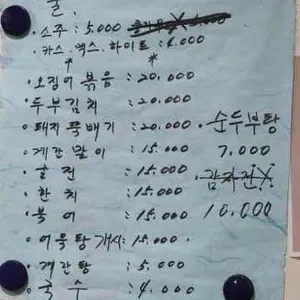 · 소주 : 5,000
· 카스 · 맥스 · 하이트 : 4,000
· 오징어 볶음 : 20,000
· 두부김치 : 20,000
· 돼지 뚝배기 : 20,000
· 계란 말이 : 15,000
· 굴전 : 15,000
· 한치 : 15,000
· 북어 : 15,000
· 어묵탕 개시 : 15,000
· 계란탕 : 5,000
· 국수 : 4,000
· 순두부탕
7,000
· 감자전
10,000